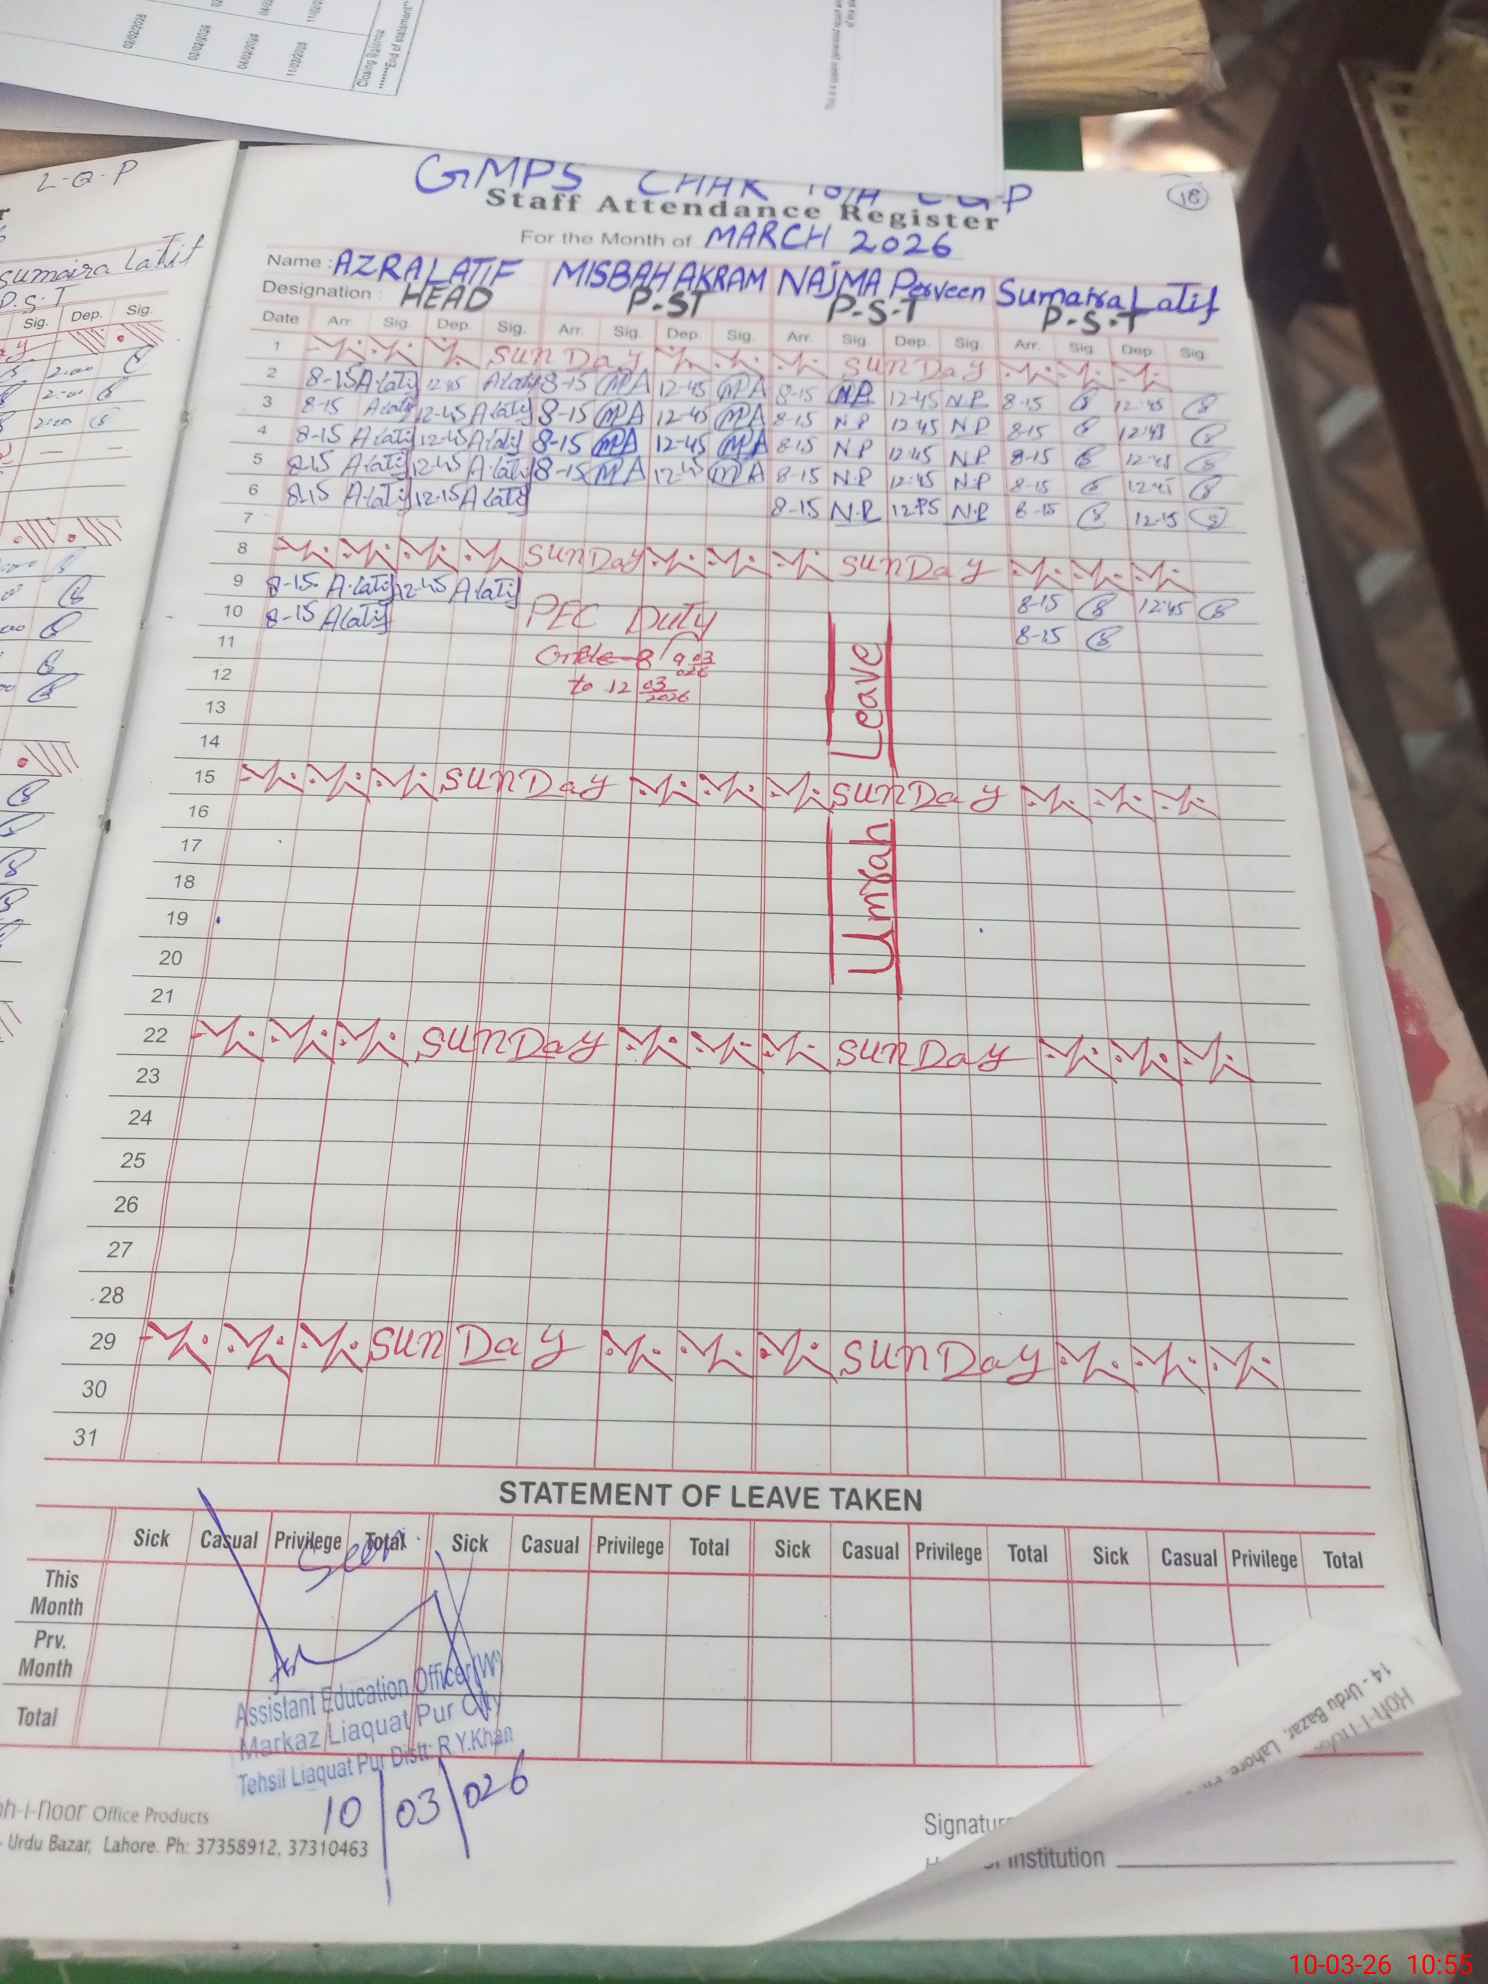 02/02/2026
02/02/2026
04/02/2026
11/02/2026
Closing Balance
******End of statement**
L-Q-P
Sumaira Latif
P.S.T
Sig. Dep. Sig.
2:00
2:00
2:00
GMPS CHAK
18
Staff Attendance Register
For the Month of MARCH 2026
Name : AZRA LATIF MISBAH AKRAM NAJMA Perveen Sumaira Latif
Designation : HEAD P-ST P-S-T P-S-T
Date Arr. Sig. Dep. Sig. Arr. Sig. Dep. Sig. Arr. Sig. Dep. Sig. Arr. Sig. Dep. Sig.
1 SUNDay SUNDay
2 8-15 A.Latif 12:45 A.Latif 8-15 MPA 12-45 MPA 8-15 N.P. 12-45 N.P. 8-15 12:45
3 8-15 A.Latif 12-45 A.Latif 8-15 MPA 12-45 MPA 8-15 N P 12-45 N.P 8-15 12:45
4 8-15 A.Latif 12-45 A.Latif 8-15 MPA 12-45 MPA 8-15 N P 12-45 N.P. 8-15 12:45
5 8-15 A.Latif 12-45 A.Latif 8-15 MPA 12-45 MPA 8-15 N.P 12-45 N.P 8-15 12:45
6 8-15 A.Latif 12-15 A.Latif 8-15 N.P N.P 8-15 12-15
7
8 SUNDay SUNDay
9 8-15 A.Latif 12-45 A.Latif PEC Duty 8-15 12:45
10 8-15 A.Latif 8-15
11 8 9 03 026
12 to 12 03 2026
13
14
Umrah Leave
15 SUNDay SUNDay
16
17
18
19
20
21
22 SUNDay SUNDay
23
24
25
26
27
28
29 SUNDay SUNDay
30
31
STATEMENT OF LEAVE TAKEN
Sick Casual Privilege Total Sick Casual Privilege Total Sick Casual Privilege Total Sick Casual Privilege Total
Seen
This Month
Prv. Month
Total
Assistant Education Officer (W)
Markaz Liaquat Pur City
Tehsil Liaquat Pur Distt: R.Y.Khan
10/03/026
oh-i-noor Office Products
- Urdu Bazar, Lahore. Ph: 37358912, 37310463
Koh-i-noor
14 - Urdu Bazar, Lahore.
Signature
Institution
10-03-26 10:55